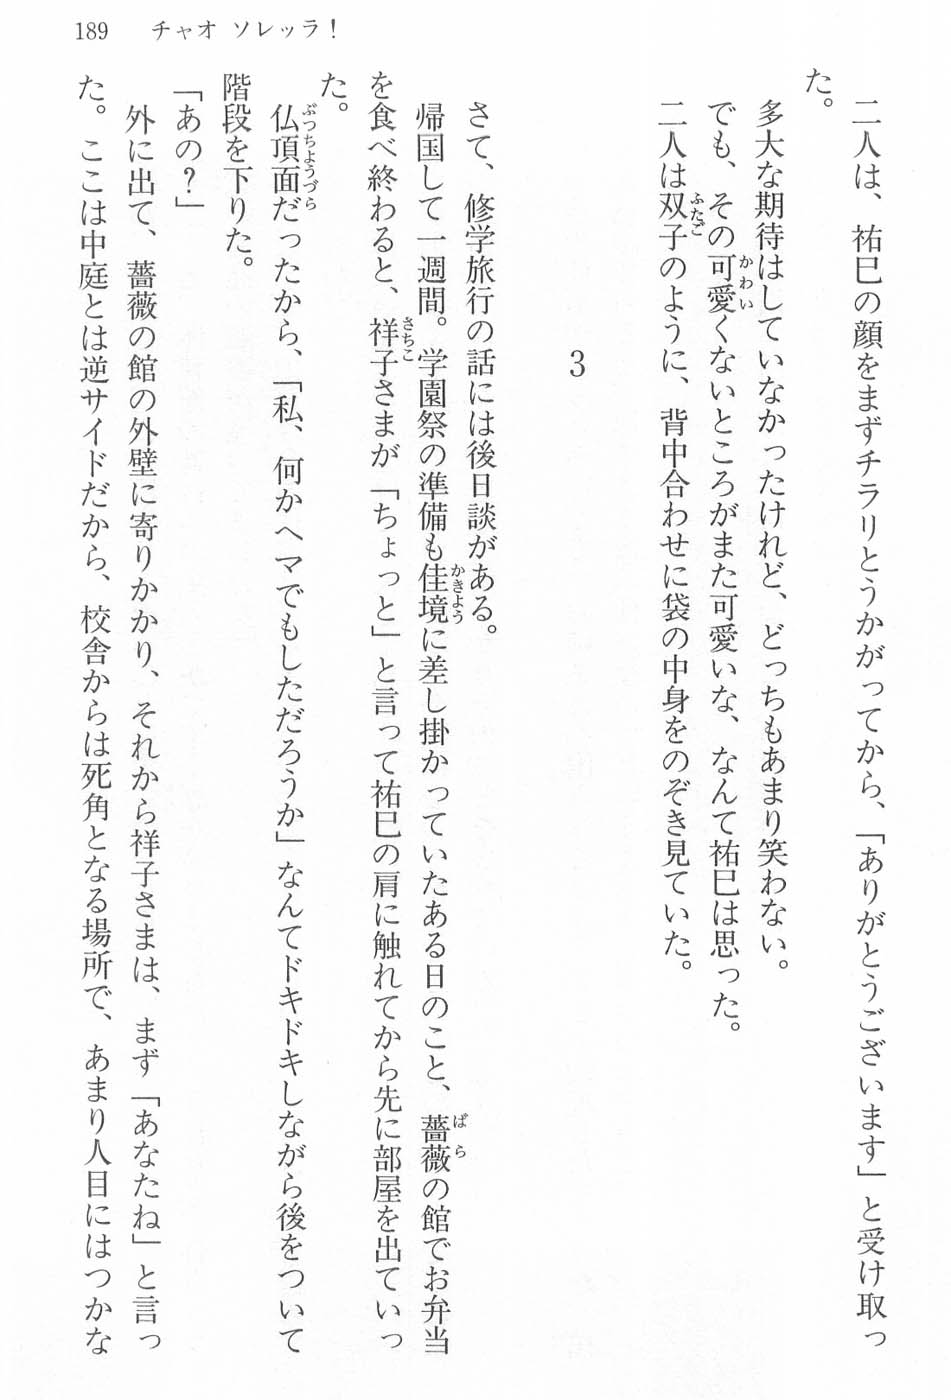 189　チャオ ソレッラ！
二人は、祐巳の顔をまずチラリとうかがってから、「ありがとうございます」と受け取っ
た。
多大な期待はしていなかったけれど、どっちもあまり笑わない。
でも、その可愛くないところがまた可愛いな、なんて祐巳は思った。
二人は双子のように、背中合わせに袋の中身をのぞき見ていた。
3
さて、修学旅行の話には後日談がある。
帰国して一週間。学園祭の準備も佳境に差し掛かっていたある日のこと、薔薇の館でお弁当
を食べ終わると、祥子さまが「ちょっと」と言って祐巳の肩に触れてから先に部屋を出ていっ
た。
仏頂面だったから、「私、何かヘマでもしただろうか」なんてドキドキしながら後をついて
階段を下りた。
「あの？」
外に出て、薔薇の館の外壁に寄りかかり、それから祥子さまは、まず「あなたね」と言っ
た。ここは中庭とは逆サイドだから、校舎からは死角となる場所で、あまり人目にはつかな